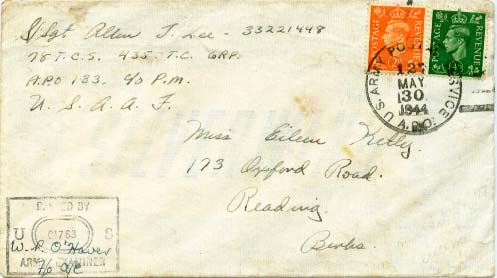 S/Sgt Allen T. Lee - 33221448
78 T.C.S. 435 T.C. GRP.
A.P.O 133. c/o P.M.
U. S. A. A. F.
POSTAGE REVENUE
POSTAGE REVENUE
U.S. ARMY POSTAL SERVICE
MAY
30
1944
A.P.O.
Miss Eileen Kelly.
173 Oxford Road.
Reading.
Berks.
PASSED BY
U S
ARMY EXAMINER
W. R. O'Haver